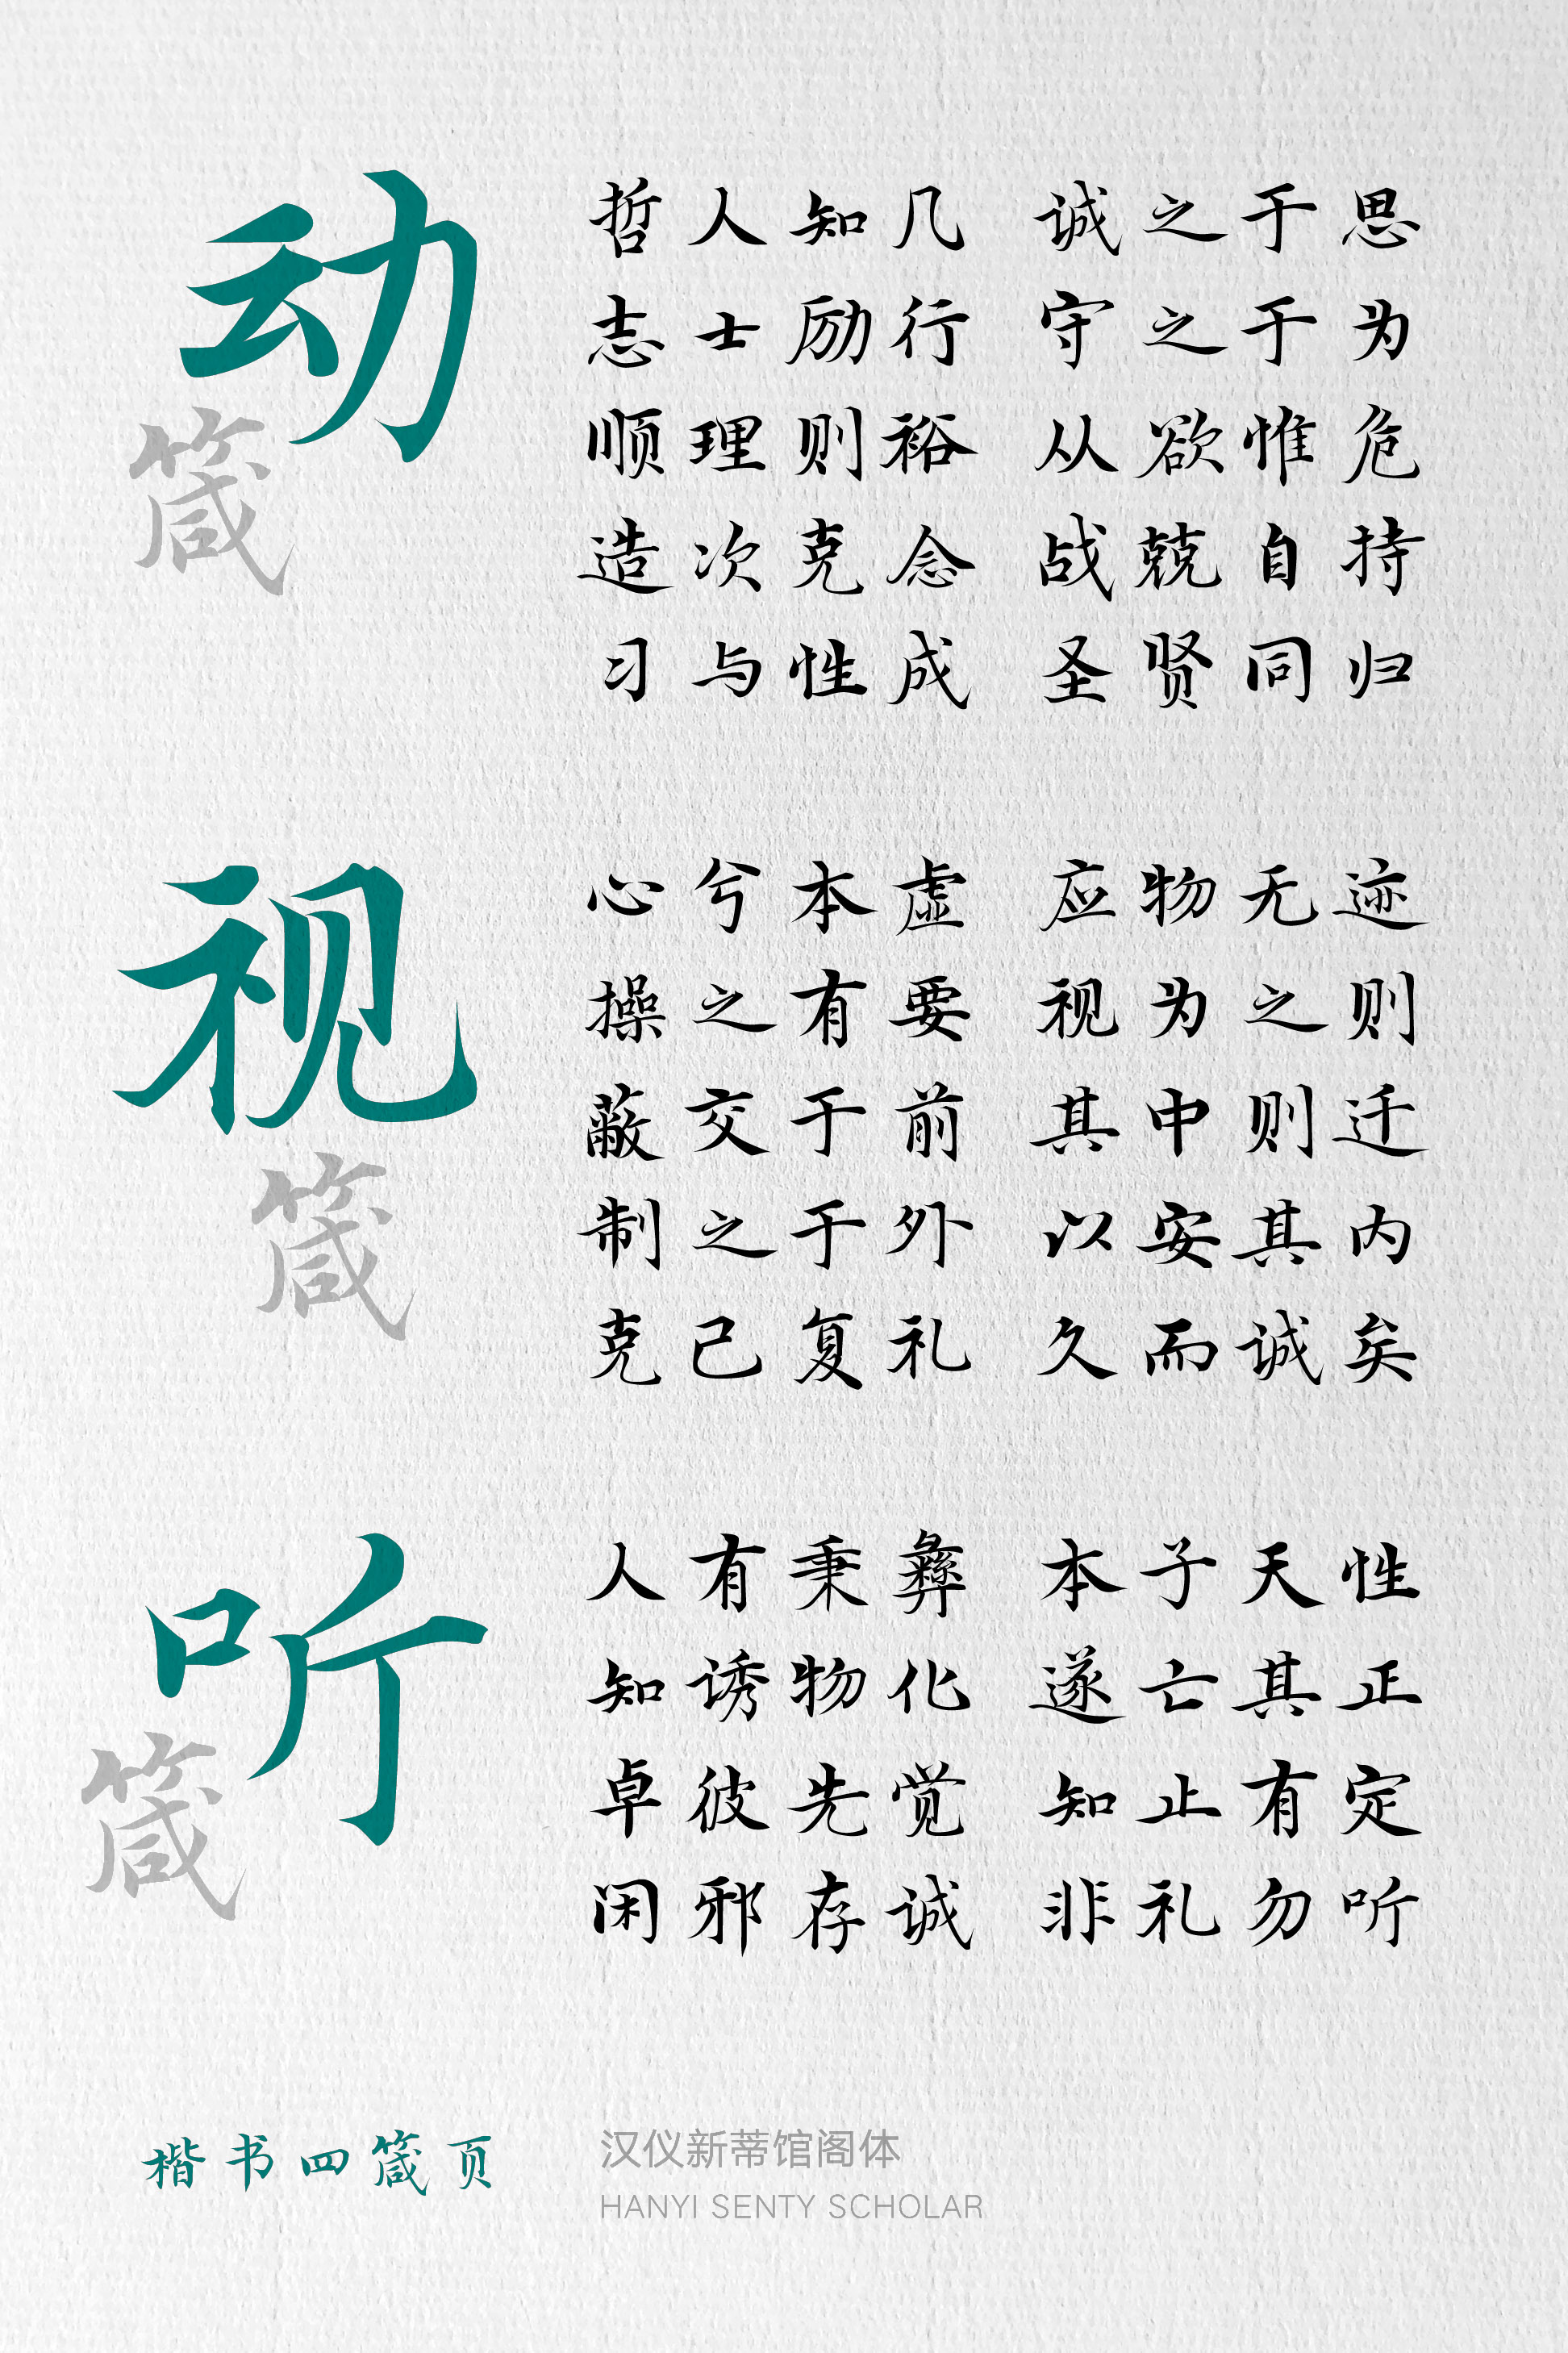 动箴
哲人知几 诚之于思
志士励行 守之于为
顺理则裕 从欲惟危
造次克念 战兢自持
习与性成 圣贤同归
视箴
心兮本虚 应物无迹
操之有要 视为之则
蔽交于前 其中则迁
制之于外 以安其内
克己复礼 久而诚矣
听箴
人有秉彝 本子天性
知诱物化 遂亡其正
卓彼先觉 知止有定
闲邪存诚 非礼勿听
楷书四箴页
汉仪新蒂馆阁体
HANYI SENTY SCHOLAR